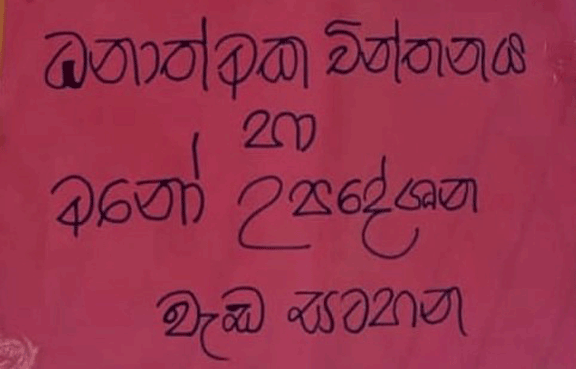 ධනාත්මක චින්තනය
හා
මනෝ උපදේශන
වැඩ සටහන